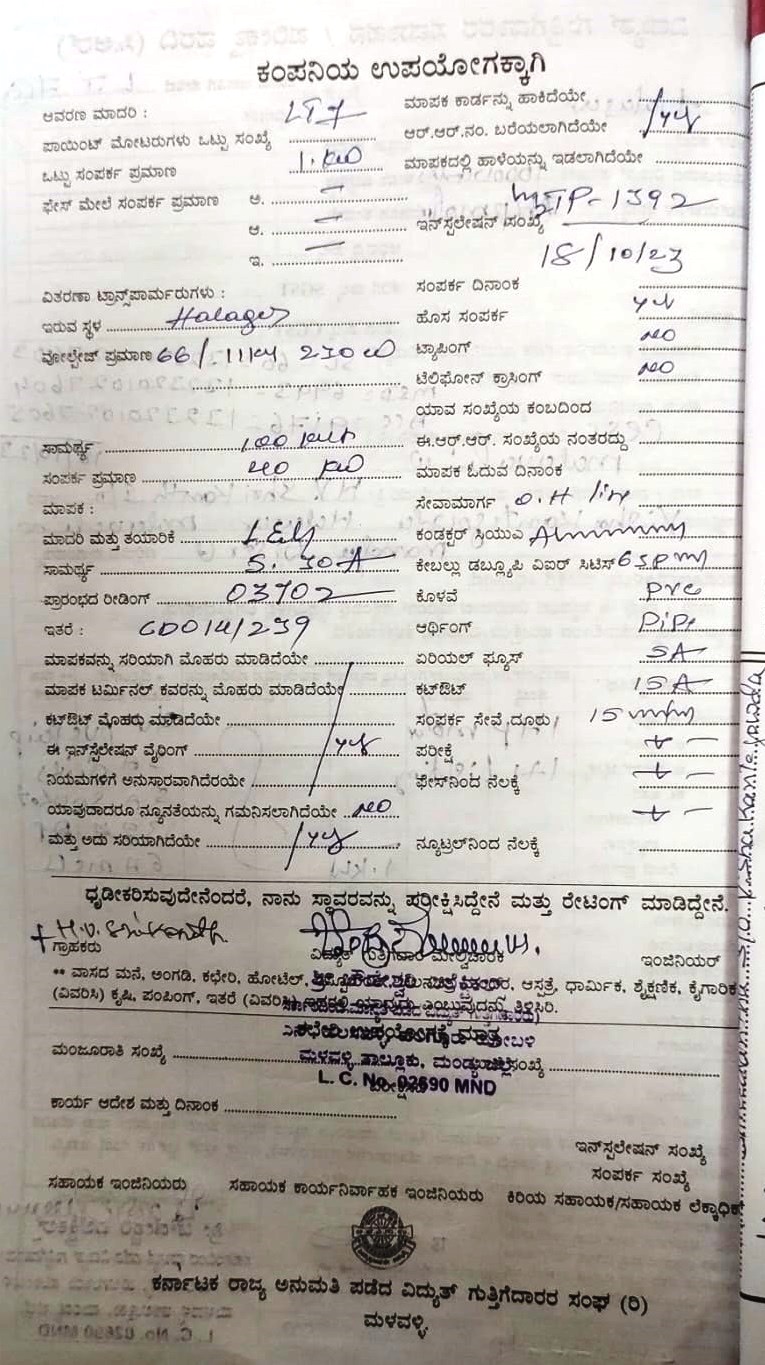 ಕಂಪನಿಯ ಉಪಯೋಗಕ್ಕಾಗಿ
ಆವರಣ ಮಾದರಿ : LT7
ಮಾಪಕ ಕಾರ್ಡನ್ನು ಹಾಕಿದೆಯೇ
ಪಾಯಿಂಟ್ ಮೋಟರುಗಳು ಒಟ್ಟು ಸಂಖ್ಯೆ
ಆರ್.ಆರ್.ನಂ. ಬರೆಯಲಾಗಿದೆಯೇ yes
ಒಟ್ಟು ಸಂಪರ್ಕ ಪ್ರಮಾಣ 1. KW
ಮಾಪಕದಲ್ಲಿ ಹಾಳೆಯನ್ನು ಇಡಲಾಗಿದೆಯೇ
ಫೇಸ್ ಮೇಲೆ ಸಂಪರ್ಕ ಪ್ರಮಾಣ ಅ. —
ಆ. —
ಇನ್ಸ್ಪಲೇಷನ್ ಸಂಖ್ಯೆ TP-1392
ಇ. —
18/10/23
ವಿತರಣಾ ಟ್ರಾನ್ಸ್‌ಪಾರ್ಮರುಗಳು :
ಸಂಪರ್ಕ ದಿನಾಂಕ
ಇರುವ ಸ್ಥಳ Halager
ಹೊಸ ಸಂಪರ್ಕ yes
ವೋಲ್ಟೇಜ್ ಪ್ರಮಾಣ 66/.11KV 230
ಟ್ಯಾಪಿಂಗ್ NO
ಟೆಲಿಫೋನ್ ಕ್ರಾಸಿಂಗ್ NO
ಯಾವ ಸಂಖ್ಯೆಯ ಕಂಬದಿಂದ
ಸಾಮರ್ಥ್ಯ 100
ಈ.ಆರ್.ಆರ್. ಸಂಖ್ಯೆಯ ನಂತರದ್ದು
ಸಂಪರ್ಕ ಪ್ರಮಾಣ 40 KW
ಮಾಪಕ ಓದುವ ದಿನಾಂಕ
ಮಾಪಕ :
ಸೇವಾಮಾರ್ಗ O.H line
ಮಾದರಿ ಮತ್ತು ತಯಾರಿಕೆ
ಕಂಡಕ್ಟರ್ ಸ್ರಿಯುಎ
ಸಾಮರ್ಥ್ಯ 5. 30A
ಕೇಬಲ್ಲು ಡಬ್ಲ್ಯೂಪಿ ವಿಐರ್ ಸಿಟಿಸ್
ಪ್ರಾರಂಭದ ರೀಡಿಂಗ್ 03702
ಕೊಳವೆ pvc
ಇತರೆ : GD014/239
ಆರ್ಥಿಂಗ್ pipe
ಮಾಪಕವನ್ನು ಸರಿಯಾಗಿ ಮೊಹರು ಮಾಡಿದೆಯೇ
ಏರಿಯಲ್ ಫ್ಯೂಸ್ 5A
ಮಾಪಕ ಟರ್ಮಿನಲ್ ಕವರನ್ನು ಮೊಹರು ಮಾಡಿದೆಯೇ
ಕಟ್‌ಔಟ್ 15A
ಕಟ್‌ಔಟ್ ಮೊಹರು ಮಾಡಿದೆಯೇ
ಸಂಪರ್ಕ ಸೇವೆ ದೂರು
ಈ ಇನ್‌ಸ್ಪಲೇಷನ್ ವೈರಿಂಗ್ yes
ಪರೀಕ್ಷೆ + –
ನಿಯಮಗಳಿಗೆ ಅನುಸ್ಸಾರವಾಗಿದೆರಯೇ
ಫೇಸ್‌ನಿಂದ ನೆಲಕ್ಕೆ + –
ಯಾವುದಾದರೂ ನ್ಯೂನತೆಯನ್ನು ಗಮನಿಸಲಾಗಿದೆಯೇ NO
+ –
ಮತ್ತು ಅದು ಸರಿಯಾಗಿದೆಯೇ yes
ನ್ಯೂಟ್ರಲ್‌ನಿಂದ ನೆಲಕ್ಕೆ
ಧೃಡೀಕರಿಸುವುದೇನೆಂದರೆ, ನಾನು ಸ್ಥಾವರವನ್ನು ಪರೀಕ್ಷಿಸಿದ್ದೇನೆ ಮತ್ತು ರೇಟಿಂಗ್ ಮಾಡಿದ್ದೇನೆ.
+ H.V. Srikantha
ಗ್ರಾಹಕರು
ವಿದ್ಯುತ್ ಗುತ್ತಿಗೆದಾರ ಮೇಲ್ವಿಚಾರಕ
ಇಂಜಿನಿಯರ್
** ವಾಸದ ಮನೆ, ಅಂಗಡಿ, ಕಛೇರಿ, ಹೋಟೆಲ್, ಆಸ್ಪತ್ರೆ, ಧಾರ್ಮಿಕ, ಶೈಕ್ಷಣಿಕ, ಕೈಗಾರಿಕ
(ವಿವರಿಸಿ) ಕೃಷಿ, ಪಂಪಿಂಗ್, ಇತರೆ (ವಿವರಿಸಿ) ಇದರಲ್ಲಿ ಯಾವುದು ಎಂಬುವುದನ್ನು ತಿಳಿಸಿರಿ.
ಕಛೇರಿ ಉಪಯೋಗಕ್ಕೆ ಮಾತ್ರ
ಮಂಜೂರಾತಿ ಸಂಖ್ಯೆ
ಮಳವಳ್ಳಿ ತಾಲ್ಲೂಕು, ಮಂಡ್ಯ ಜಿಲ್ಲೆ
ಸಂಖ್ಯೆ
L. C. No. 02690 MND
ಕಾರ್ಯ ಆದೇಶ ಮತ್ತು ದಿನಾಂಕ
ಇನ್‌ಸ್ಪಲೇಷನ್ ಸಂಖ್ಯೆ
ಸಂಪರ್ಕ ಸಂಖ್ಯೆ
ಸಹಾಯಕ ಇಂಜಿನಿಯರು
ಸಹಾಯಕ ಕಾರ್ಯನಿರ್ವಾಹಕ ಇಂಜಿನಿಯರು
ಕಿರಿಯ ಸಹಾಯಕ/ಸಹಾಯಕ ಲೆಕ್ಕಾಧಿಕ
ಕರ್ನಾಟಕ ರಾಜ್ಯ ಅನುಮತಿ ಪಡೆದ ವಿದ್ಯುತ್ ಗುತ್ತಿಗೆದಾರರ ಸಂಘ (ರಿ)
ಮಳವಳ್ಳಿ.